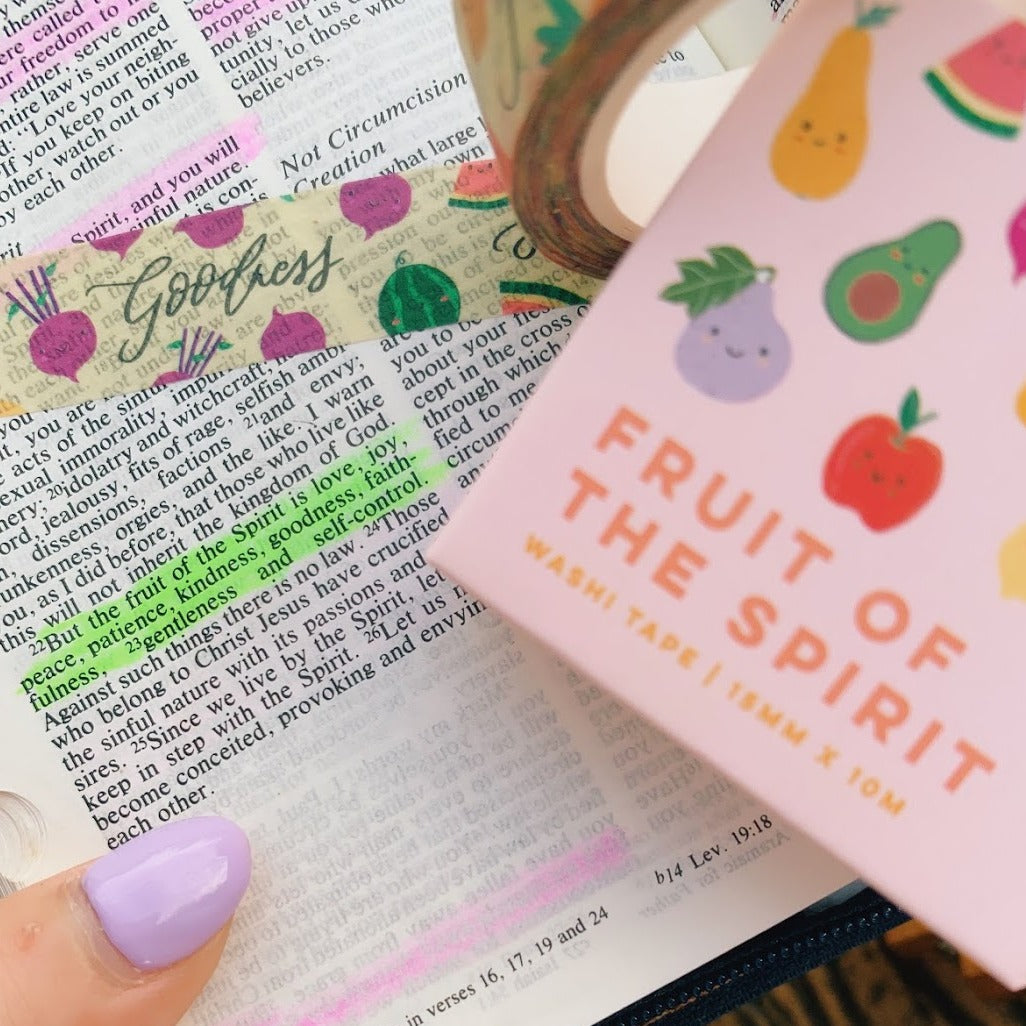 ere called
ur freedom to
, rather, serve one
ntire law is summed
d: “Love your neigh-
If you keep on biting
other, watch out or you
by each other.
Spirit, and you will
sinful nature.
is con-
Spirit
proper
not give up
tunity, let us
cially to those who
believers.
Not Circumcision
Creation
what large
own
Goodness
it, you are
acts of the sinful
exual immorality, impurity
nery; 20idolatry and witchcraft;
ord, jealousy, fits of rage, selfish ambi
dissensions, factions 21and envy;
unkenness, orgies, and the like. I warn
you, as I did before, that those who live like
this will not inherit the kingdom of God.
22But the fruit of the Spirit is love, joy,
peace, patience, kindness, goodness, faith-
fulness, 23gentleness and self-control.
Against such things there is no law. 24Those
who belong to Christ Jesus have crucified
the sinful nature with its passions and
sires. 25Since we live by the Spirit, let
keep in step with the Spirit. 26Let us
become conceited, provoking and envying
each other.
you to be
about your fles
cept in the cross o
through which
fied to me
circum
any
in verses 16, 17, 19 and 24
b14 Lev. 19:18
FRUIT OF
THE SPIRIT
WASHI TAPE | 15MM X 10M